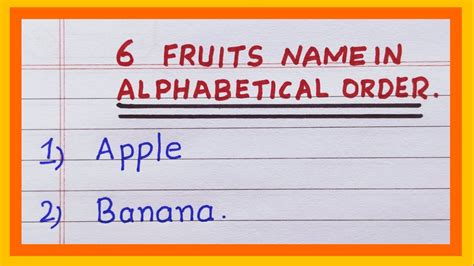 6 FRUITS NAME IN
ALPHABETICAL ORDER.
1) Apple
2) Banana.